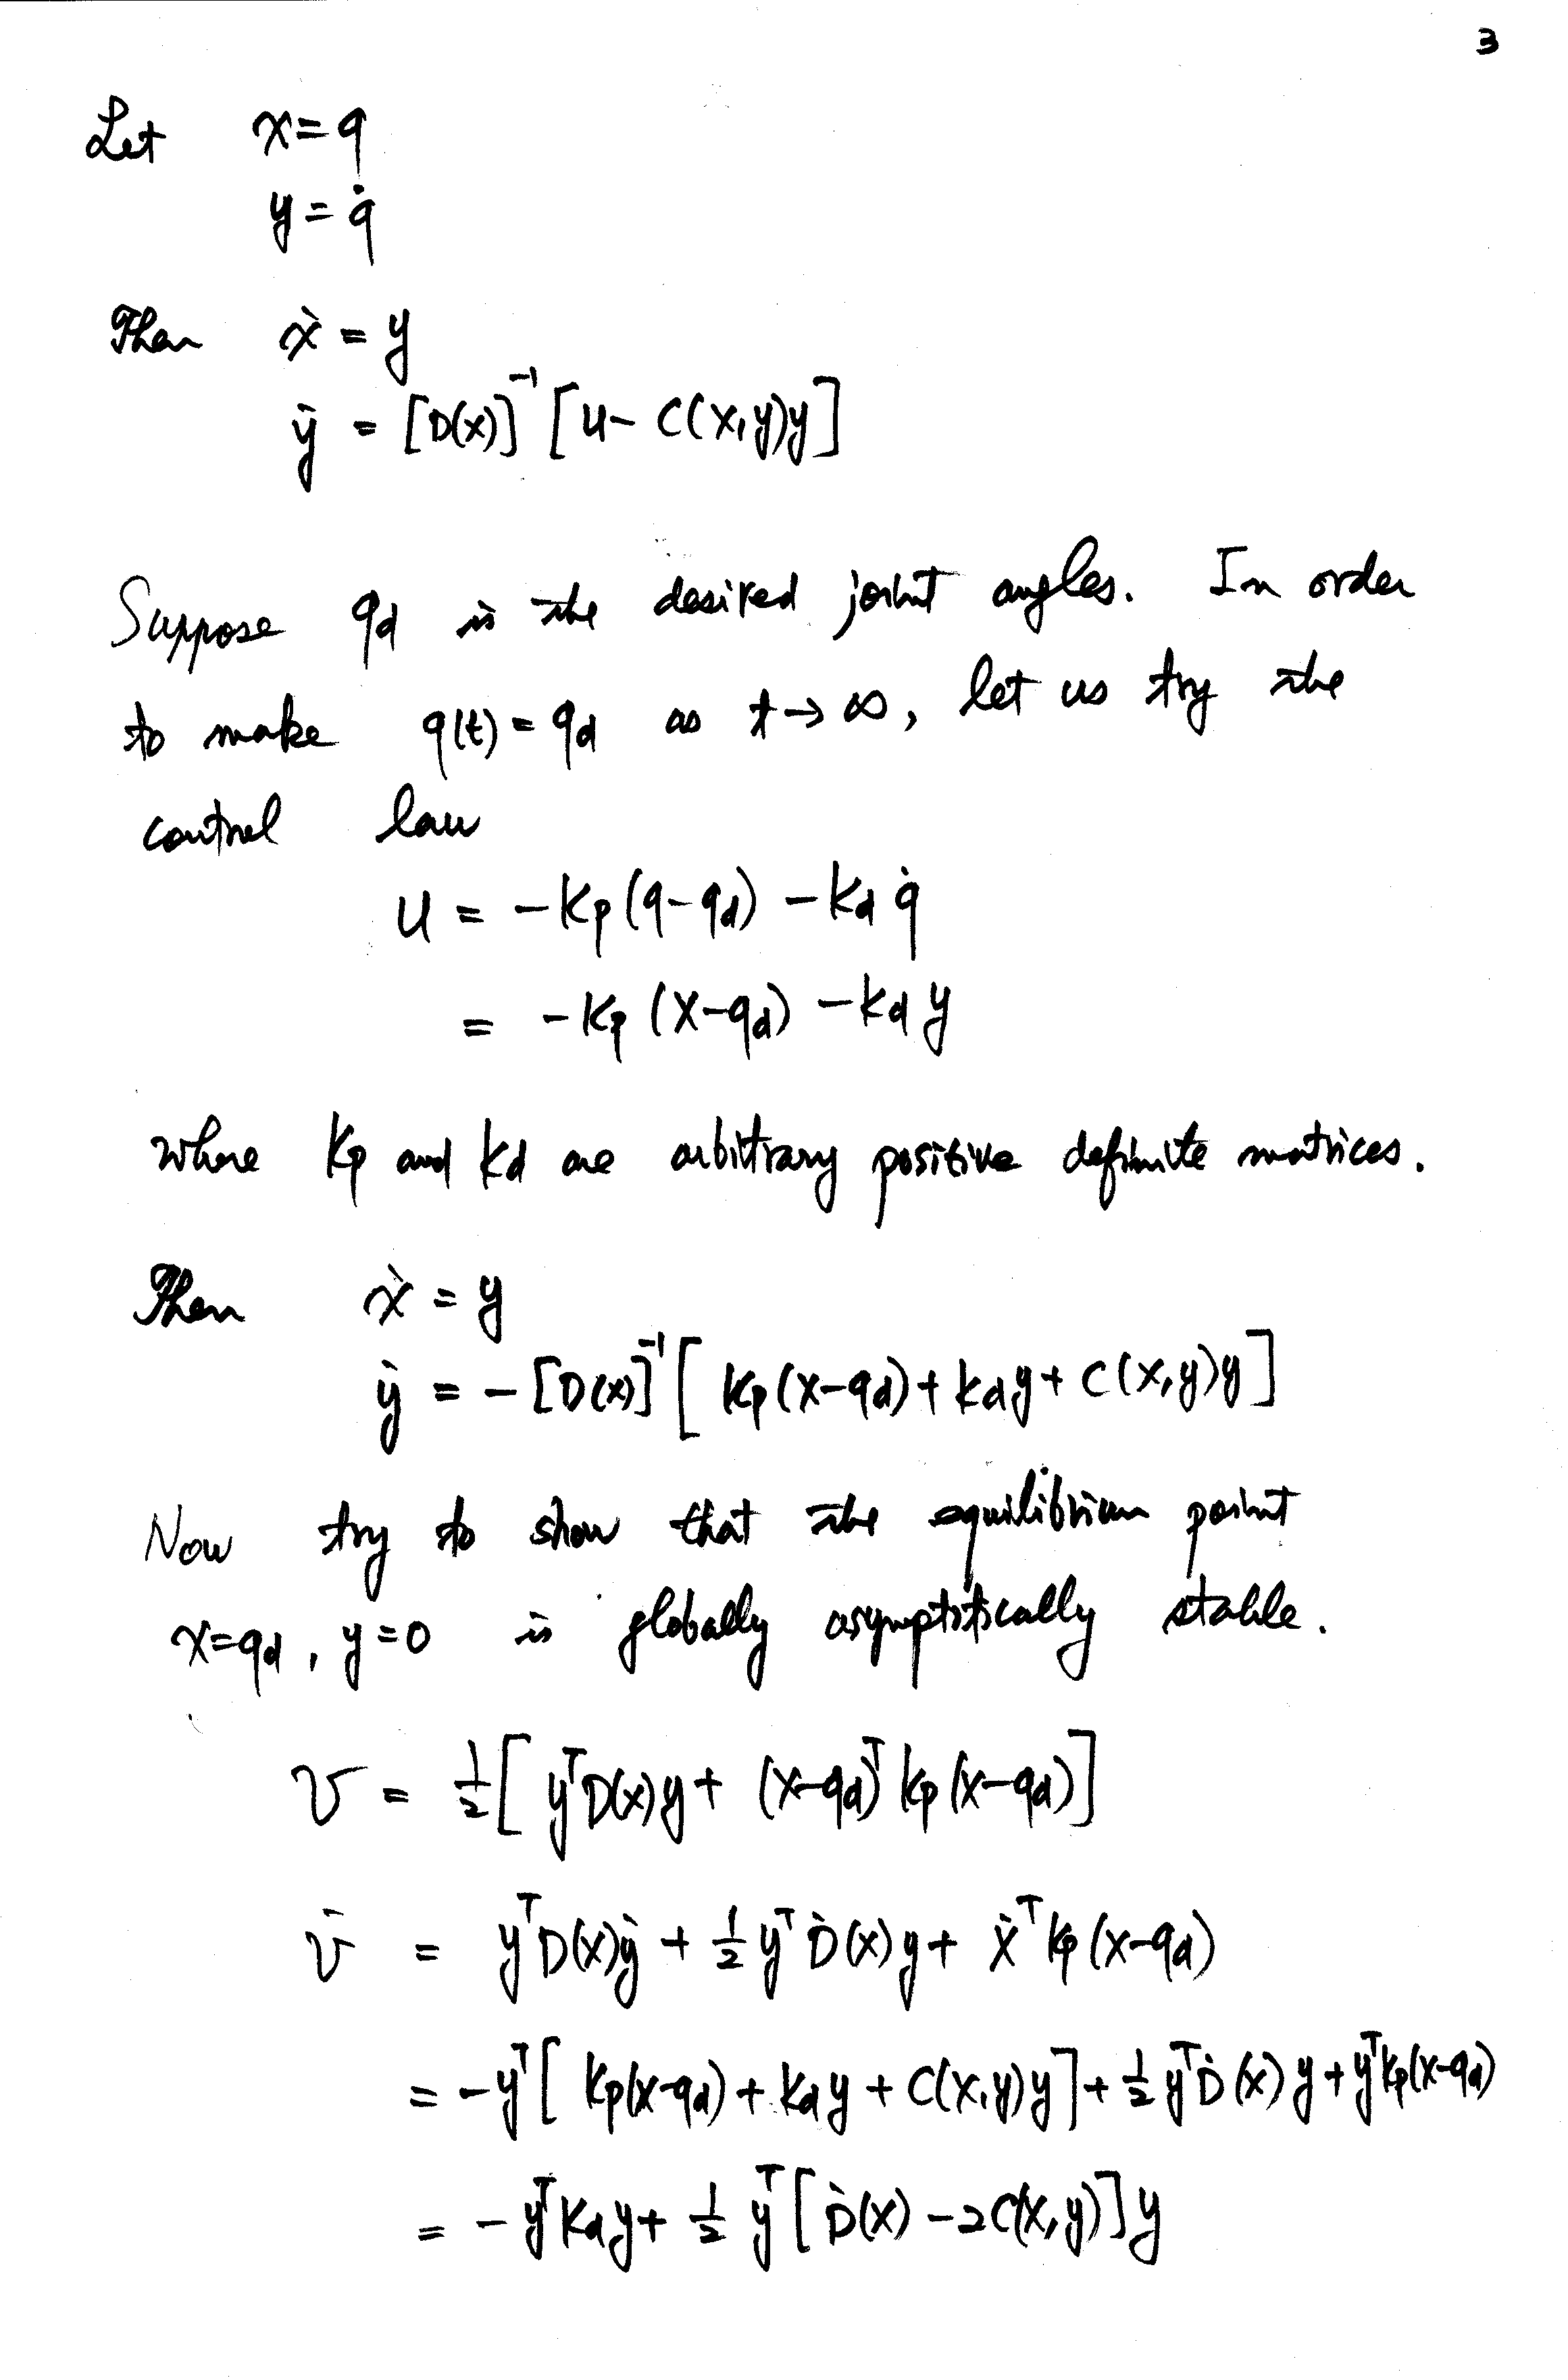 3
Let x = q
y = q̇
Then ẋ = y
ẏ = [D(x)]⁻¹ [u - C(x,y)y]
Suppose qd is the desired joint angles. In order
to make q(t) = qd as t → ∞, let us try the
control law
u = -Kp(q-qd) - Kd q̇
= -Kp (x-qd) - Kd y
where Kp and Kd are arbitrary positive definite matrices.
Then ẋ = y
ẏ = -[D(x)]⁻¹ [ Kp(x-qd) + Kd y + C(x,y)y ]
Now try to show that the equilibrium point
x=qd, y=0 is globally asymptotically stable.
v = ½[ yᵀD(x)y + (x-qd)ᵀ Kp (x-qd)]
v̇ = yᵀD(x)ẏ + ½ yᵀ Ḋ(x) y + ẋᵀ Kp (x-qd)
= -yᵀ[ Kp(x-qd) + Kd y + C(x,y) y ] + ½ yᵀ Ḋ(x) y + yᵀ Kp(x-qd)
= -yᵀ Kd y + ½ yᵀ [ Ḋ(x) - 2C(x,y)] y